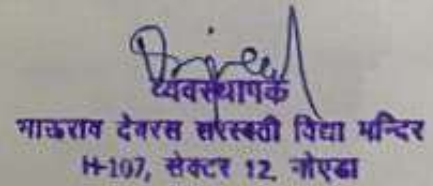 व्यवस्थापक
भाऊराव देवरस सरस्वती विद्या मन्दिर
H-107, सेक्टर 12, नोएडा